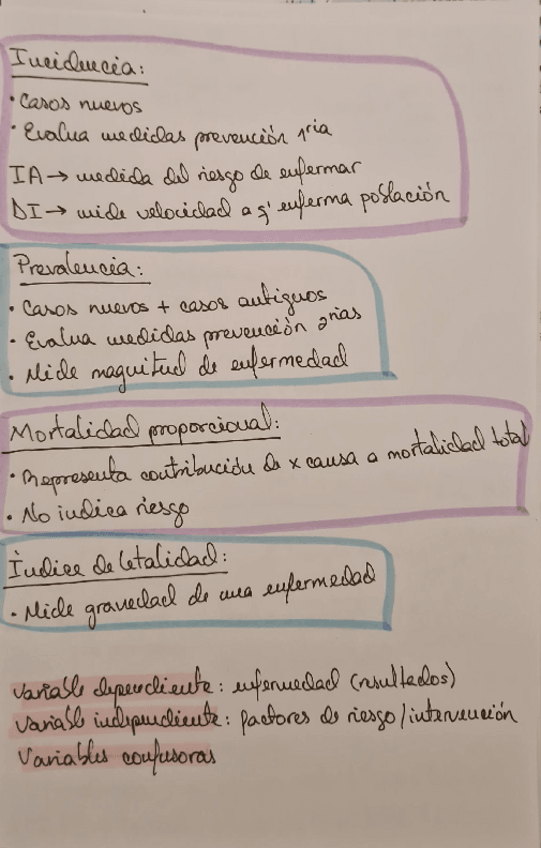 Incidencia:
· Casos nuevos
· Evalua medidas prevención 1ria
IA → medida del riesgo de enfermar
DI → mide velocidad a q' enferma población
Prevalencia:
· Casos nuevos + casos antiguos
· Evalua medidas prevención 2rias
· Mide magnitud de enfermedad
Mortalidad proporcional:
· Representa contribución de x causa a mortalidad total
· No indica riesgo
Índice de letalidad:
· Mide gravedad de una enfermedad
Variable dependiente: enfermedad (resultados)
Variable independiente: factores de riesgo/intervención
Variables confusoras